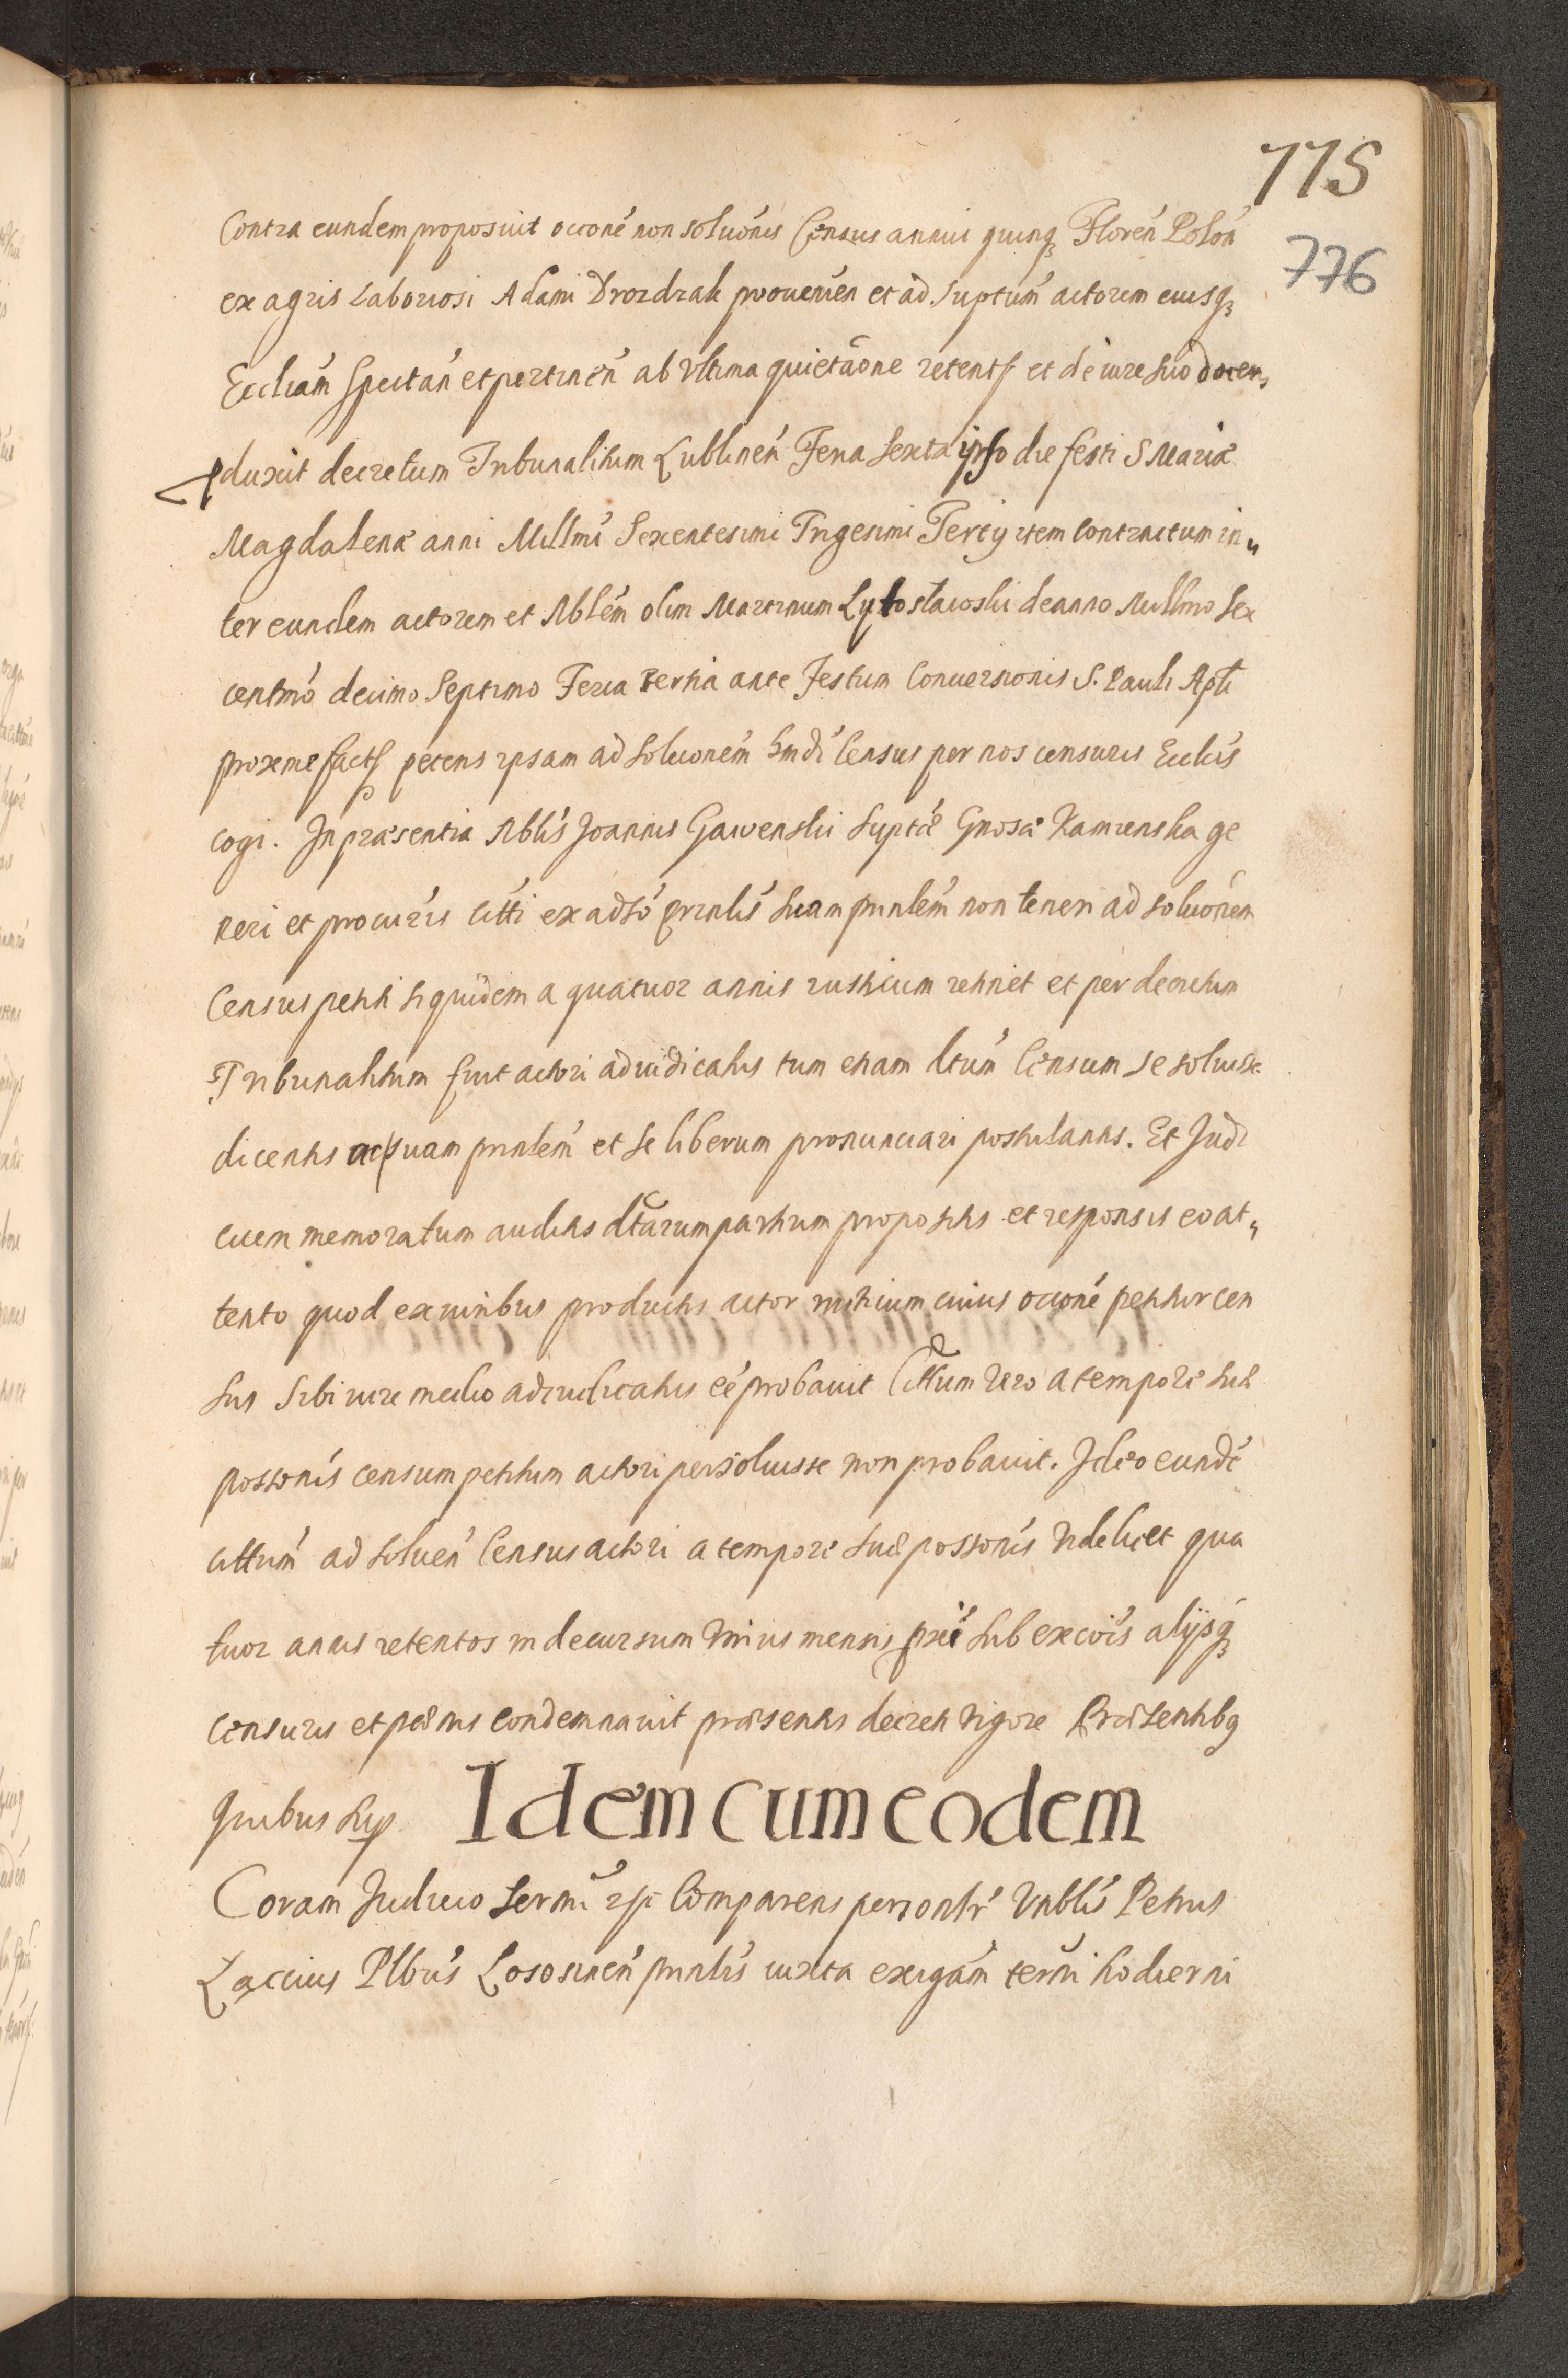 775
776
Contra eundem proposuit occoné non soluónis Census annui quinq3 Florén Polón
ex agris Laboriosi Adami Drozdzak prouenién et ad suptúm actorem eiusq3
Eccliám spectán et pertinén ab vltima quietaõne retent et de iure suo docen,
duxit decretum Tribunalitium Lublinén Feria sexta ipso die festi S Mariæ
Magdalenæ anni Millmi Sexcentesimi Trigesimi Tercÿ item Contractum in„
ter eundem actorem et Nblém olim Martinum Lytoslawski de anno Millmo Sex
centmó decimo Septimo Feria Tertia ante Festum Conuersionis S. Pauli Apli
proxime fact petens ipsam ad soluconém hmdi Census per nos censuris Ecclis
cogi. In præsentia Nblis Joannis Gawenski suptæ Gnosæ Kamienska ge
neri et procuris citti ex adsó prinlis suam prinlem non teneri ad soluónem
Census petiti siquidem a quatuor annis rusticum retinet et per decretum
Tribunalitium fuit actori adiudicatus tum etiam dtum Censum se soluisse
dicentis ac suam prinlem et se liberum pronunciari postulantis. Et Judi
cium memoratum auditis dtarum partium propositis et responsis eo at„
tento quod ex iuribus productis actor rusticum cuius occoné petitur cen
sus sibi iure medio adiudicatus eé probauit Cittum vero a tempore suæ
possonis censum petitum actori persoluisse non probauit. Ideo eundé
cittum ad soluén Census actori a tempore suæ possonis videlicet qua
tuor annis retentos in decursum vnius mensis sub excois alijsq3
censuris et pænis condemnauit præsentis decreti vigore Præsentibq
quibus sup
Idem cum eodem
Coram Judicio termi Comparens personlr Vnblis Petrus
Laccius Plbús Lososinén prinlis iuxta exigám termi hodierni